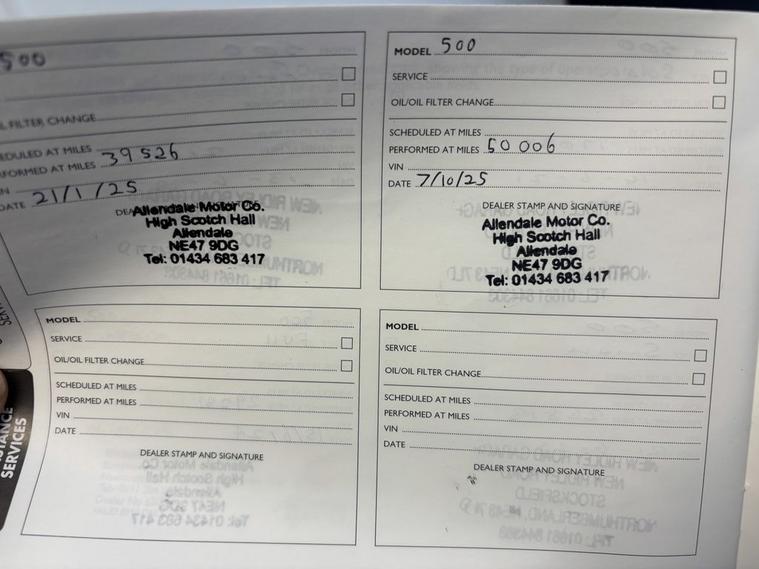 500
L FILTER CHANGE
EDULED AT MILES
FORMED AT MILES 39526
DATE 21/1/25
Allendale Motor Co.
High Scotch Hall
Allendale
NE47 9DG
Tel: 01434 683 417
MODEL 500
SERVICE
OIL/OIL FILTER CHANGE
SCHEDULED AT MILES
PERFORMED AT MILES 50006
VIN
DATE 7/10/25
DEALER STAMP AND SIGNATURE
Allendale Motor Co.
High Scotch Hall
Allendale
NE47 9DG
Tel: 01434 683 417
MODEL
SERVICE
OIL/OIL FILTER CHANGE
SCHEDULED AT MILES
PERFORMED AT MILES
VIN
DATE
DEALER STAMP AND SIGNATURE
MODEL
SERVICE
OIL/OIL FILTER CHANGE
SCHEDULED AT MILES
PERFORMED AT MILES
VIN
DATE
DEALER STAMP AND SIGNATURE
SERVICES